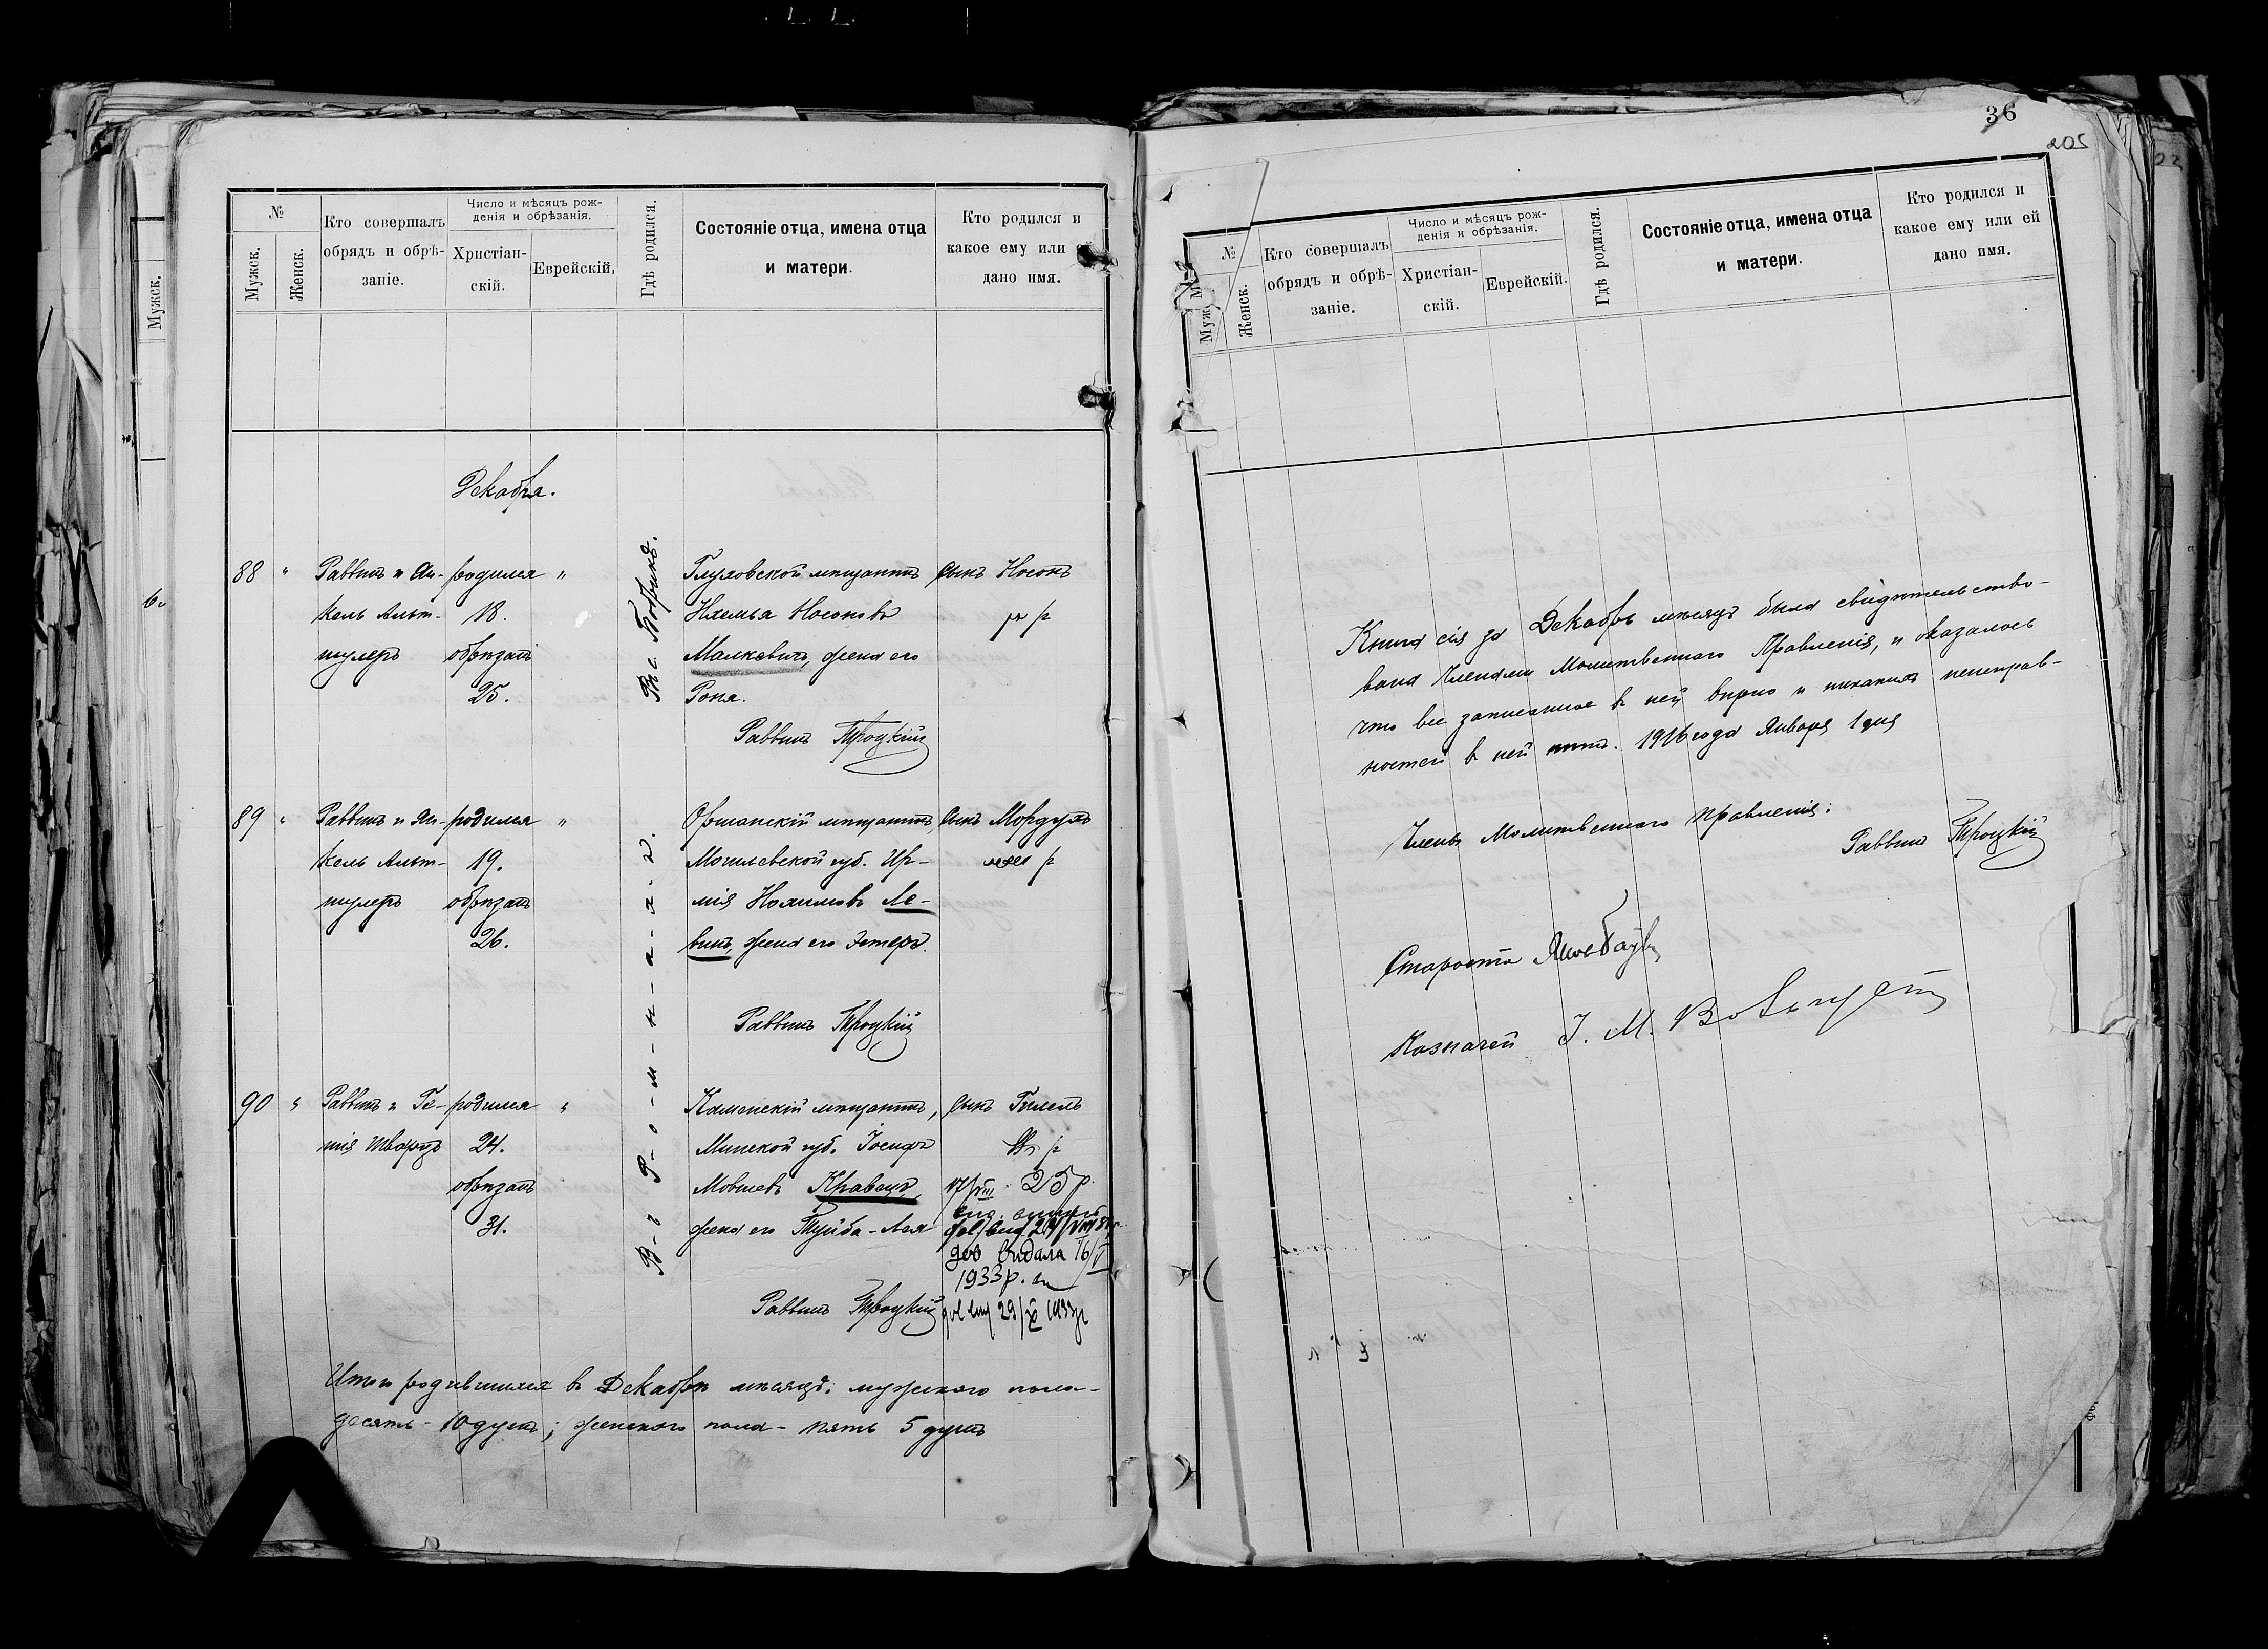 №
Мужск.
Женск.
Кто совершалъ
обрядъ и обрѣ-
заніе.
Число и мѣсяцъ рож-
денія и обрѣзанія.
Христіан-
скій.
Еврейскій,
Гдѣ родился.
Состояніе отца, имена отца
и матери.
Кто родился и
какое ему или
дано имя.
Мужск.
Декабря.
88 "
Раввинъ и Ян-
кель Альт-
шулеръ
родился "
18.
обрѣзанъ
25.
Глуховской мѣщанинъ
Нхемья Носоновъ
Малкевичъ, жена его
Роня.
Раввинъ Троцкій
сынъ Носонъ
89 "
Раввинъ и Ян-
кель Альт-
шулеръ
родился "
19.
обрѣзанъ
26.
Оршанскій мѣщанинъ,
Могилевской губ. Ир-
мія Нохимовъ Ле-
винъ, жена его Эстеръ.
Раввинъ Троцкій
сынъ Мордухъ
90 "
Раввинъ и Ге-
ція Шварцъ
родился "
24.
обрѣзанъ
31.
Каменскій мѣщанинъ,
Минской губ. Іосифъ
Мовшевъ Кравецъ,
жена его Туйба-Лея
Раввинъ Троцкій
сынъ Гилель
17/VIII 25 р.
дов видала 16/V
1933 р.
29/X 1933 р
В-ъ Р-о-м-н-а-х-ъ.
Итого родившихся въ Декабрѣ мѣсяцѣ: мужского пола-
десять - 10 душъ; женского пола - пять 5 душъ
36
205
№
Мужск.
Женск.
Кто совершалъ
обрядъ и обрѣ-
заніе.
Число и мѣсяцъ рож-
денія и обрѣзанія.
Христіан-
скій.
Еврейскій.
Гдѣ родился.
Состояніе отца, имена отца
и матери.
Кто родился и
какое ему или ей
дано имя.
Книга сія за Декабрь мѣсяцъ была свидѣтельство-
вана Членами Молитвеннаго Правленія, и оказалось
что все записанное въ ней вѣрно и никакихъ неисправ-
ностей въ ней нѣтъ. 1916 года Января 1 дня
Члены Молитвеннаго Правленія:
Раввинъ Троцкій
Староста
Казначей І. М.